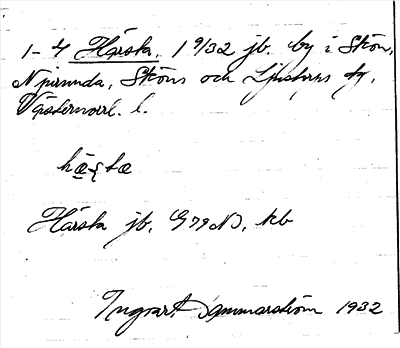 1-4 Härsta, 1 9/32 jb. by i Skön,
Njurunda, Sköns och Ljustorps tg,
Västernorrl. l.
hæʂta
Härsta jb, G 79 NO, kb
Ingvart Hammarström 1932